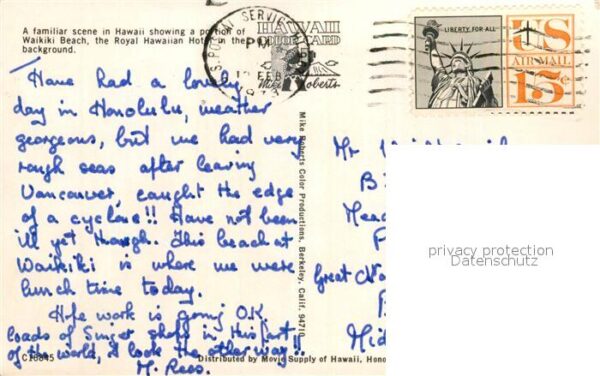 A familiar scene in Hawaii showing a portion of
Waikiki Beach, the Royal Hawaiian Hotel in the
background.
HAWAII
COLOR CARD
Mike Roberts
U.S. POSTAL SERVICE
PM
FEB
LIBERTY FOR ALL
US
AIR MAIL
15c
Have had a lovely
day in Honolulu, weather
georgeous, but we had very
rough seas after leaving
Vancouver, caught the edge
of a cyclone!! Have not been
ill yet though. This beach at
Waikiki is where we were
lunch time today.
Hope work is going O.K.
loads of Singer shops in this part
of the world, I look the other way!!
M. Rees.
Mike Roberts Color Productions, Berkeley, Calif. 94710
Mr
B
Mead
Great
Mid
privacy protection
Datenschutz
C10845
Distributed by Movie Supply of Hawaii, Hono